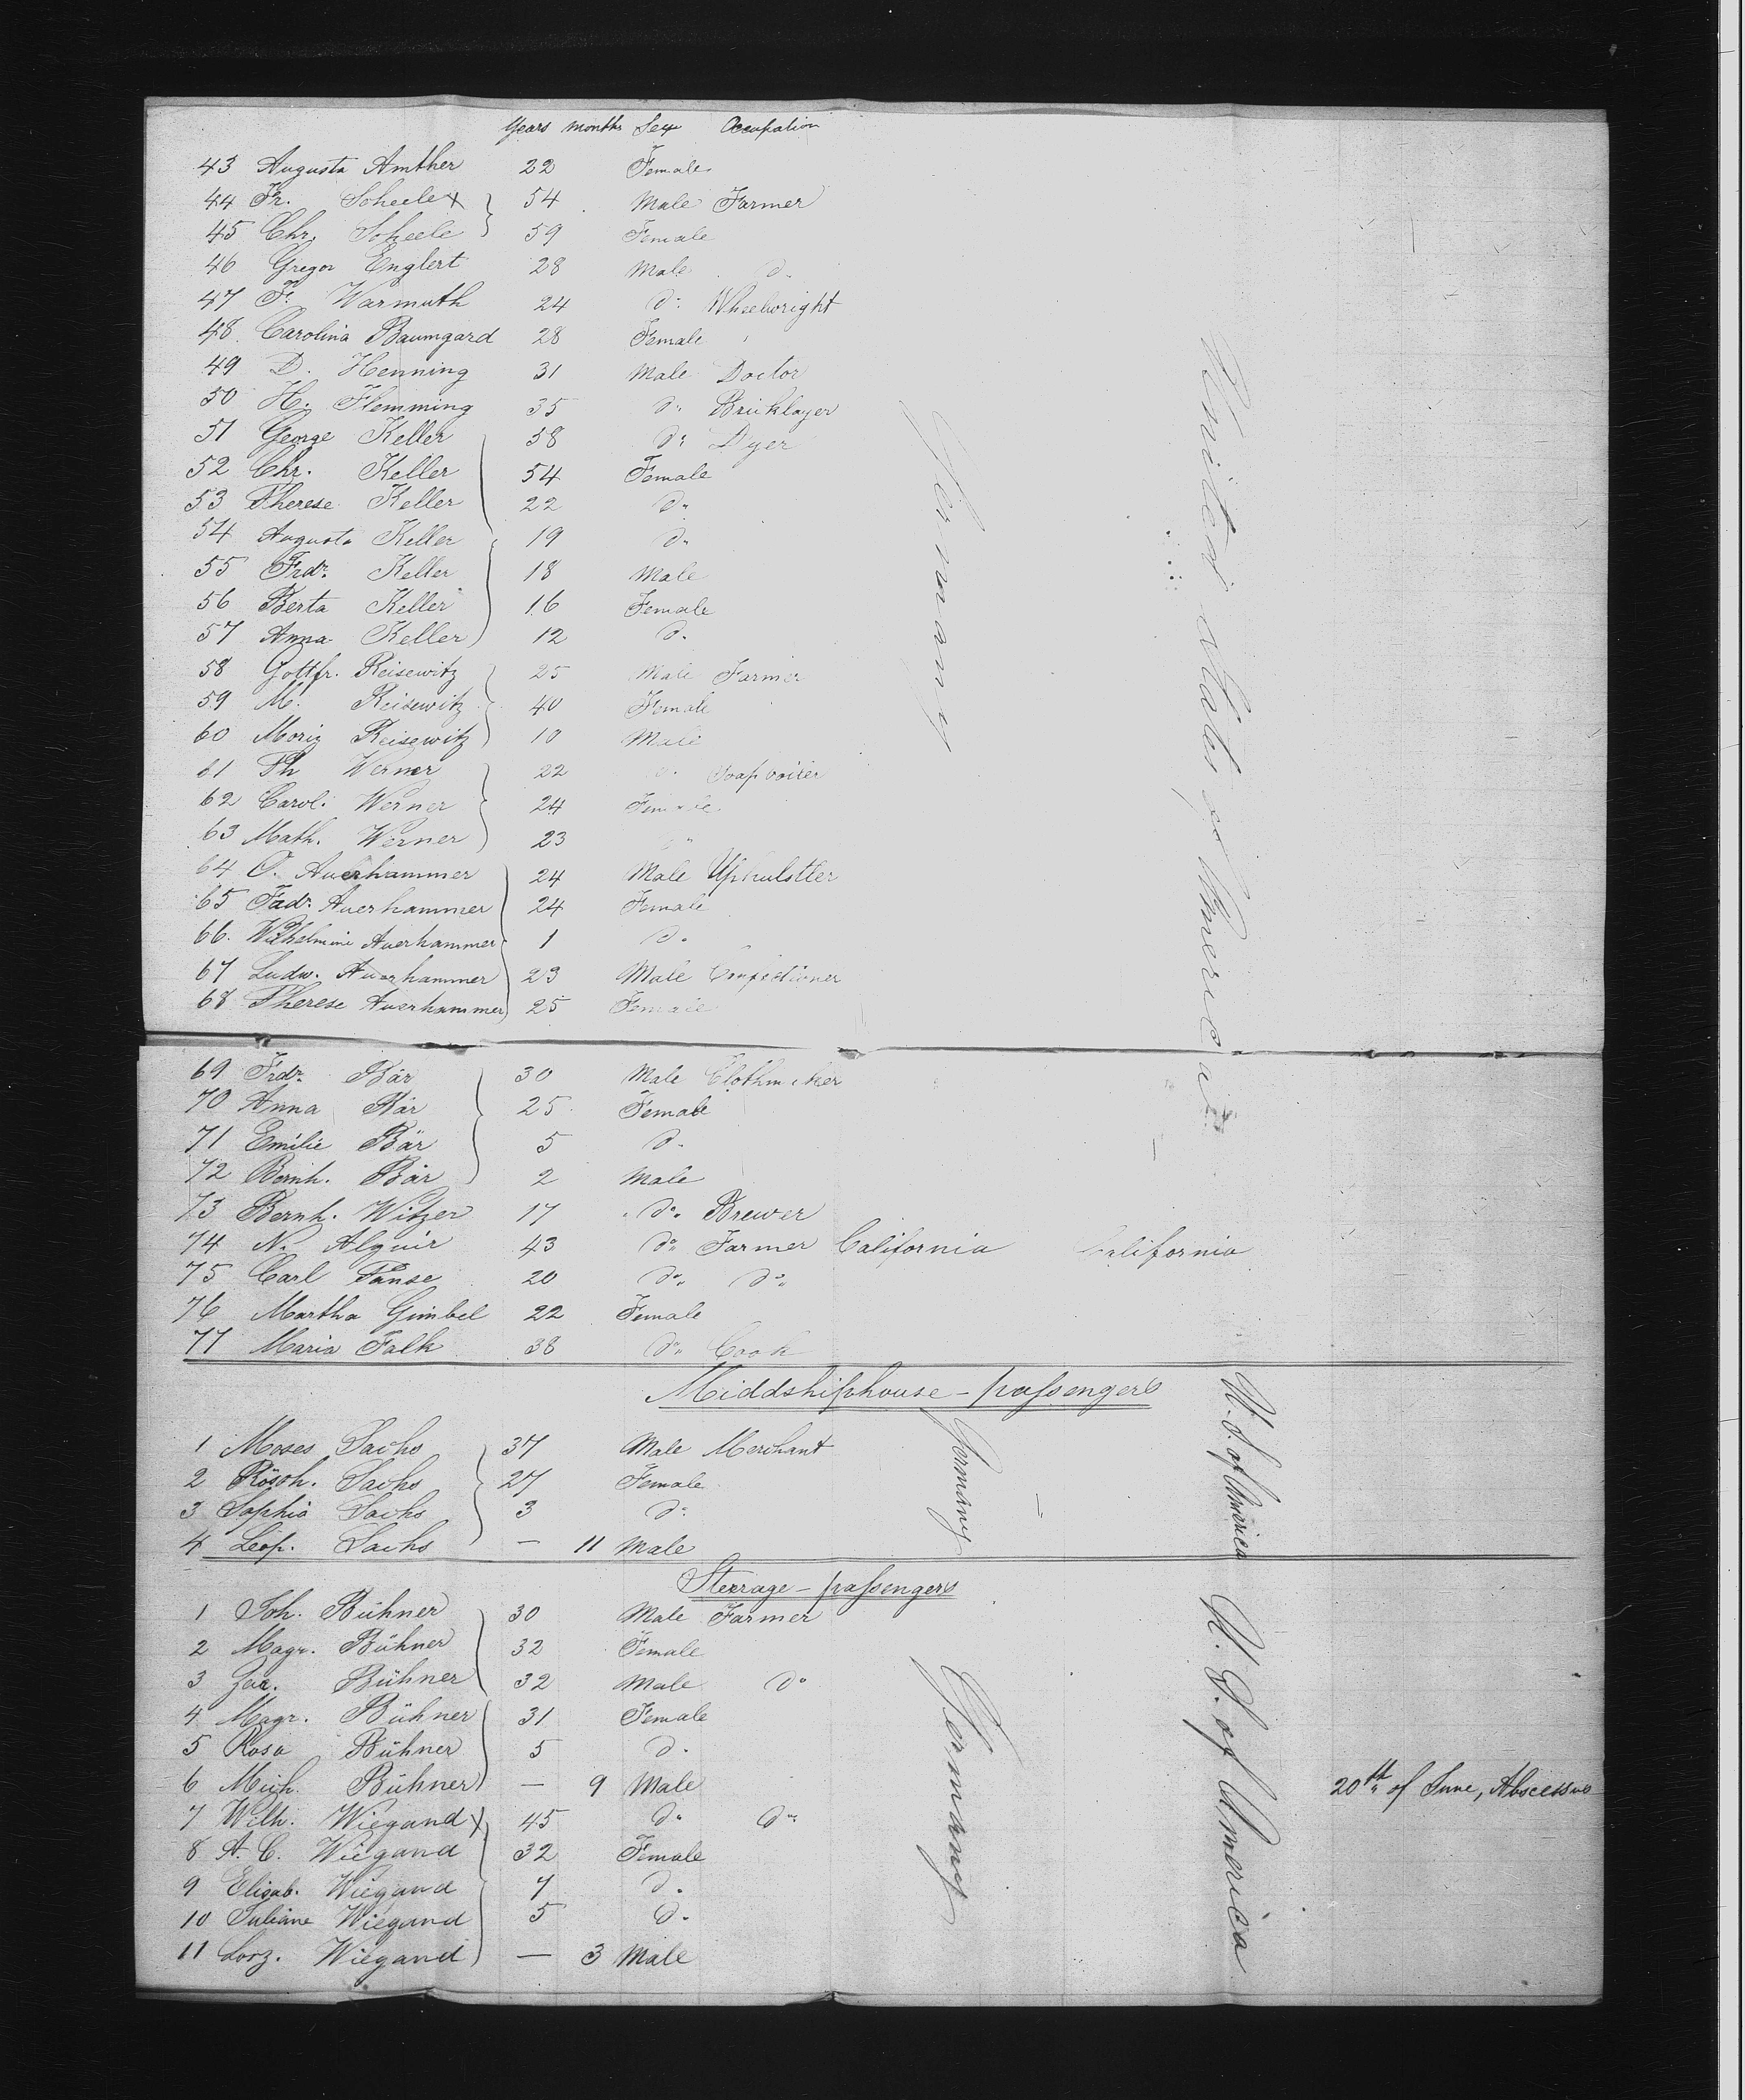 Years Months Sex Occupation
43 Augusta Amther 22 Female
44 Fr. Scheele x 54 Male Farmer
45 Chr. Scheele 59 Female
46 Gregor Englert 28 Male do
47 F. Warmuth 24 do Wheelwright
48 Carolina Baumgard 28 Female
49 D. Henning 31 Male Doctor
50 H. Flemming 35 do Bricklayer
51 George Keller 58 do Dyer
52 Chr. Keller 54 Female
53 Therese Keller 22 do
54 Augusta Keller 19 do
55 Frdr. Keller 18 Male
56 Berta Keller 16 Female
57 Anna Keller 12 do
58 Gottfr. Reisewitz 25 Male Farmer
59 M. Reisewitz 40 Female
60 Moriz Reisewitz 10 Male
61 Th Werner 22 do Soap boiler
62 Carol. Werner 24 Female
63 Math. Werner 23
64 O. Auerhammer 24 Male Uphulstler
65 Fadr. Auerhammer 24 Female
66. Wilhelmine Auerhammer 1 do
67 Ludw. Auerhammer 23 Male Confectioner
68 Therese Auerhammer 25 Female
Germany
United States of America
69 Frdr. Bär 30 Male Clothmaker
70 Anna Bär 25 Female
71 Emilie Bär 5 do
72 Bernh. Bär 2 Male
73 Bernh. Witzer 17 do Brewer
74 N. Alguir 43 do Farmer California California
75 Carl Panse 20 do do
76 Martha Gimbel 22 Female
77 Maria Falk 38 do Cook
Middshiphouse-passengers
1 Moses Sachs 37 Male Merchant
2 Rösch. Sachs 27 Female
3 Sophia Sachs 3 do
4 Leop. Sachs — 11 Male
Germany
U. S. of America
Sterrage-passengers
1 Joh. Bühner 30 Male Farmer
2 Magr. Bühner 32 Female
3 Bühner 32 Male do
4 Magr. Bühner 31 Female
5 Rosa Bühner 5 do
6 Mich. Bühner — 9 Male 20th of June, Abscessus
7 Wilh. Wiegand x 45 do do
8 A. C. Wiegand 32 Female
9 Elisab. Wiegand 7 do
10 Juliane Wiegand 5 do
11 Lorz. Wiegand — 3 Male
Germany
U. S. of America